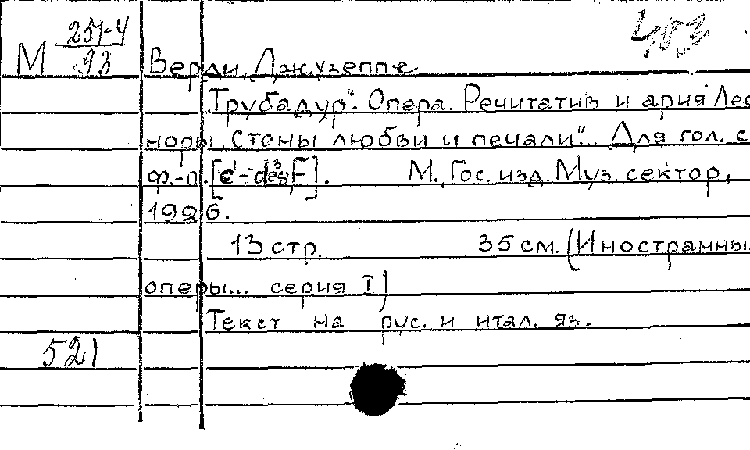 М 257-4
93
403
Верди, Джузеппе
"Трубадур". Опера. Речитатив и ария Лео
норы "Стоны любви и печали"... Для гол. с
ф.-п. [c¹-des³, F]. М., Гос. изд. Муз. сектор,
1926.
13 стр. 35 см. (Иностранны
оперы... серия I)
Текст на рус. и итал. яз.
521